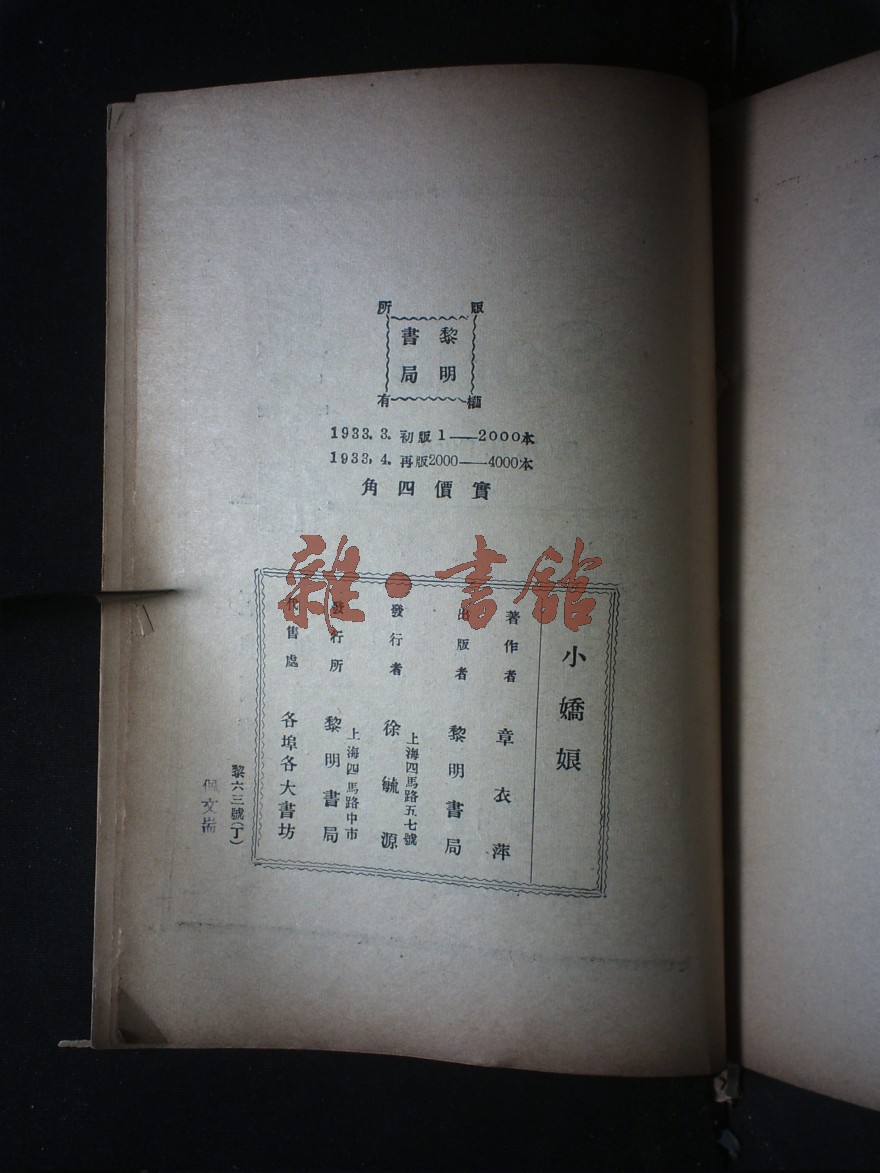 版權所有
黎明
書局
1933.3.初版1——2000本
1933,4.再版2000——4000本
實價四角
雜·書館
小嬌娘
著作者 章衣萍
出版者 黎明書局
上海四馬路五七號
發行者 徐毓源
上海四馬路中市
發行所 黎明書局
代售處 各埠各大書坊
黎六三號(丁)